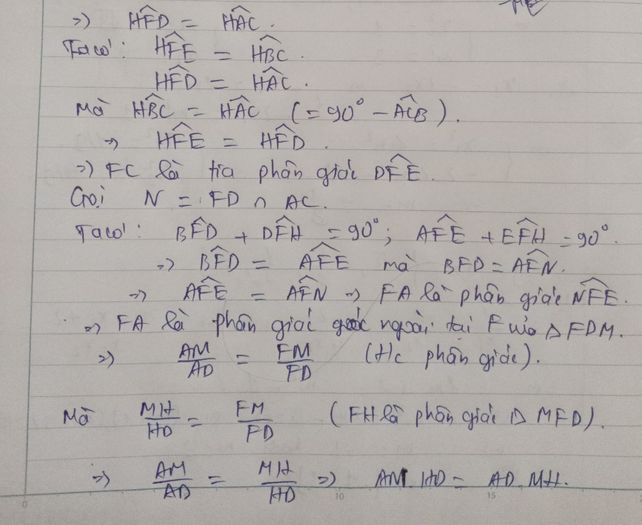 => HFD^ = HAC^.
Ta có: HFE^ = HBC^.
HFD^ = HAC^.
Mà HBC^ = HAC^ (= 90° - ACB^).
=> HFE^ = HFD^.
=> FC là tia phân giác DFE^.
Gọi N = FD ∩ AC.
Ta có: BFD^ + DFH^ = 90°; AFE^ + EFH^ = 90°.
=> BFD^ = AFE^ mà BFD = AFN^.
=> AFE^ = AFN^ => FA là phân giác NFE^.
=> FA là phân giác góc ngoài tại F của △FDM.
=> AM/AD = FM/FD (t/c phân giác).
Mà MH/HD = FM/FD (FH là phân giác △ MFD).
=> AM/AD = MH/HD => AM.HD = AD.MH.
0 10 15